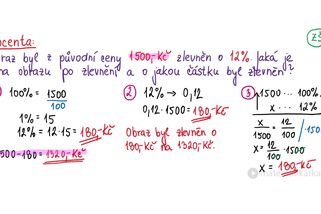 centa:
raz byl z původní ceny 1500,-Kč zlevněn o 12%. Jaká je
na obrazu po zlevnění a o jakou částku byl zlevněn?
100% = 1500/100
1% = 15
12% = 12·15 = 180,-Kč
500-180 = 1320,-Kč
② 12% → 0,12
0,12·1500 = 180,-Kč
Obraz byl zlevněn o
180,-Kč na 1320,-Kč.
③ 1500 ... 100%
x ... 12%
x/1500 = 12/100 /·1500
x = 12/100 · 1500
x = 180,-Kč